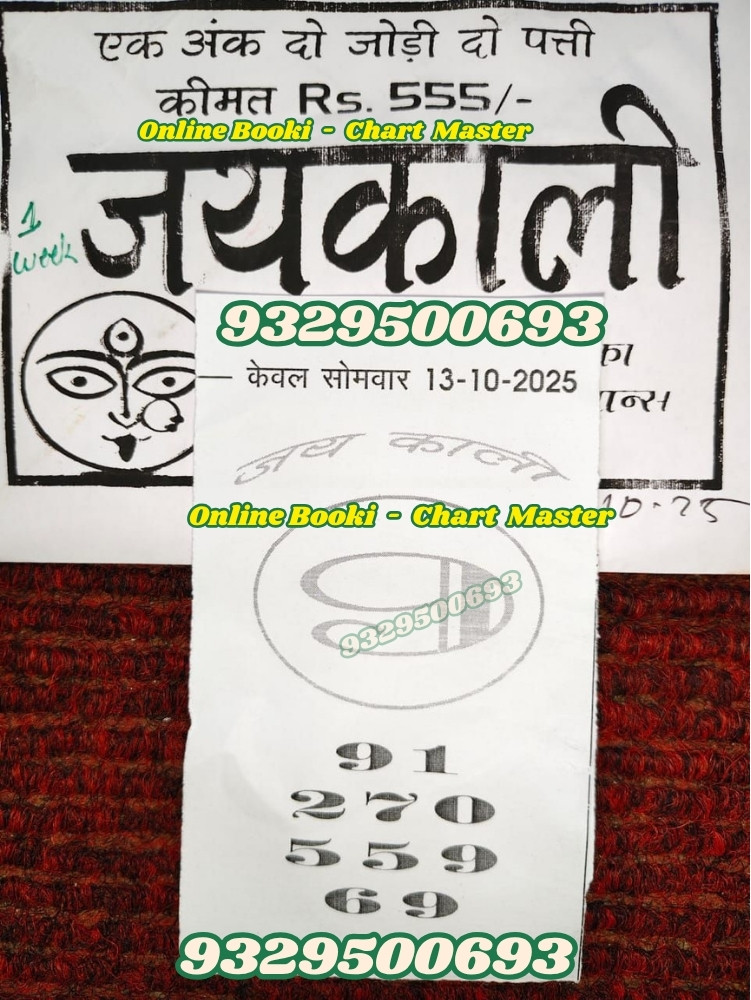 एक अंक दो जोड़ी दो पत्ती
कीमत Rs. 555/-
Online Booki - Chart Master
जयकाली
1
week
9329500693
का
केवल सोमवार 13-10-2025
न्स
जय काली
Online Booki - Chart Master
10-25
9
9329500693
91
270
559
69
9329500693